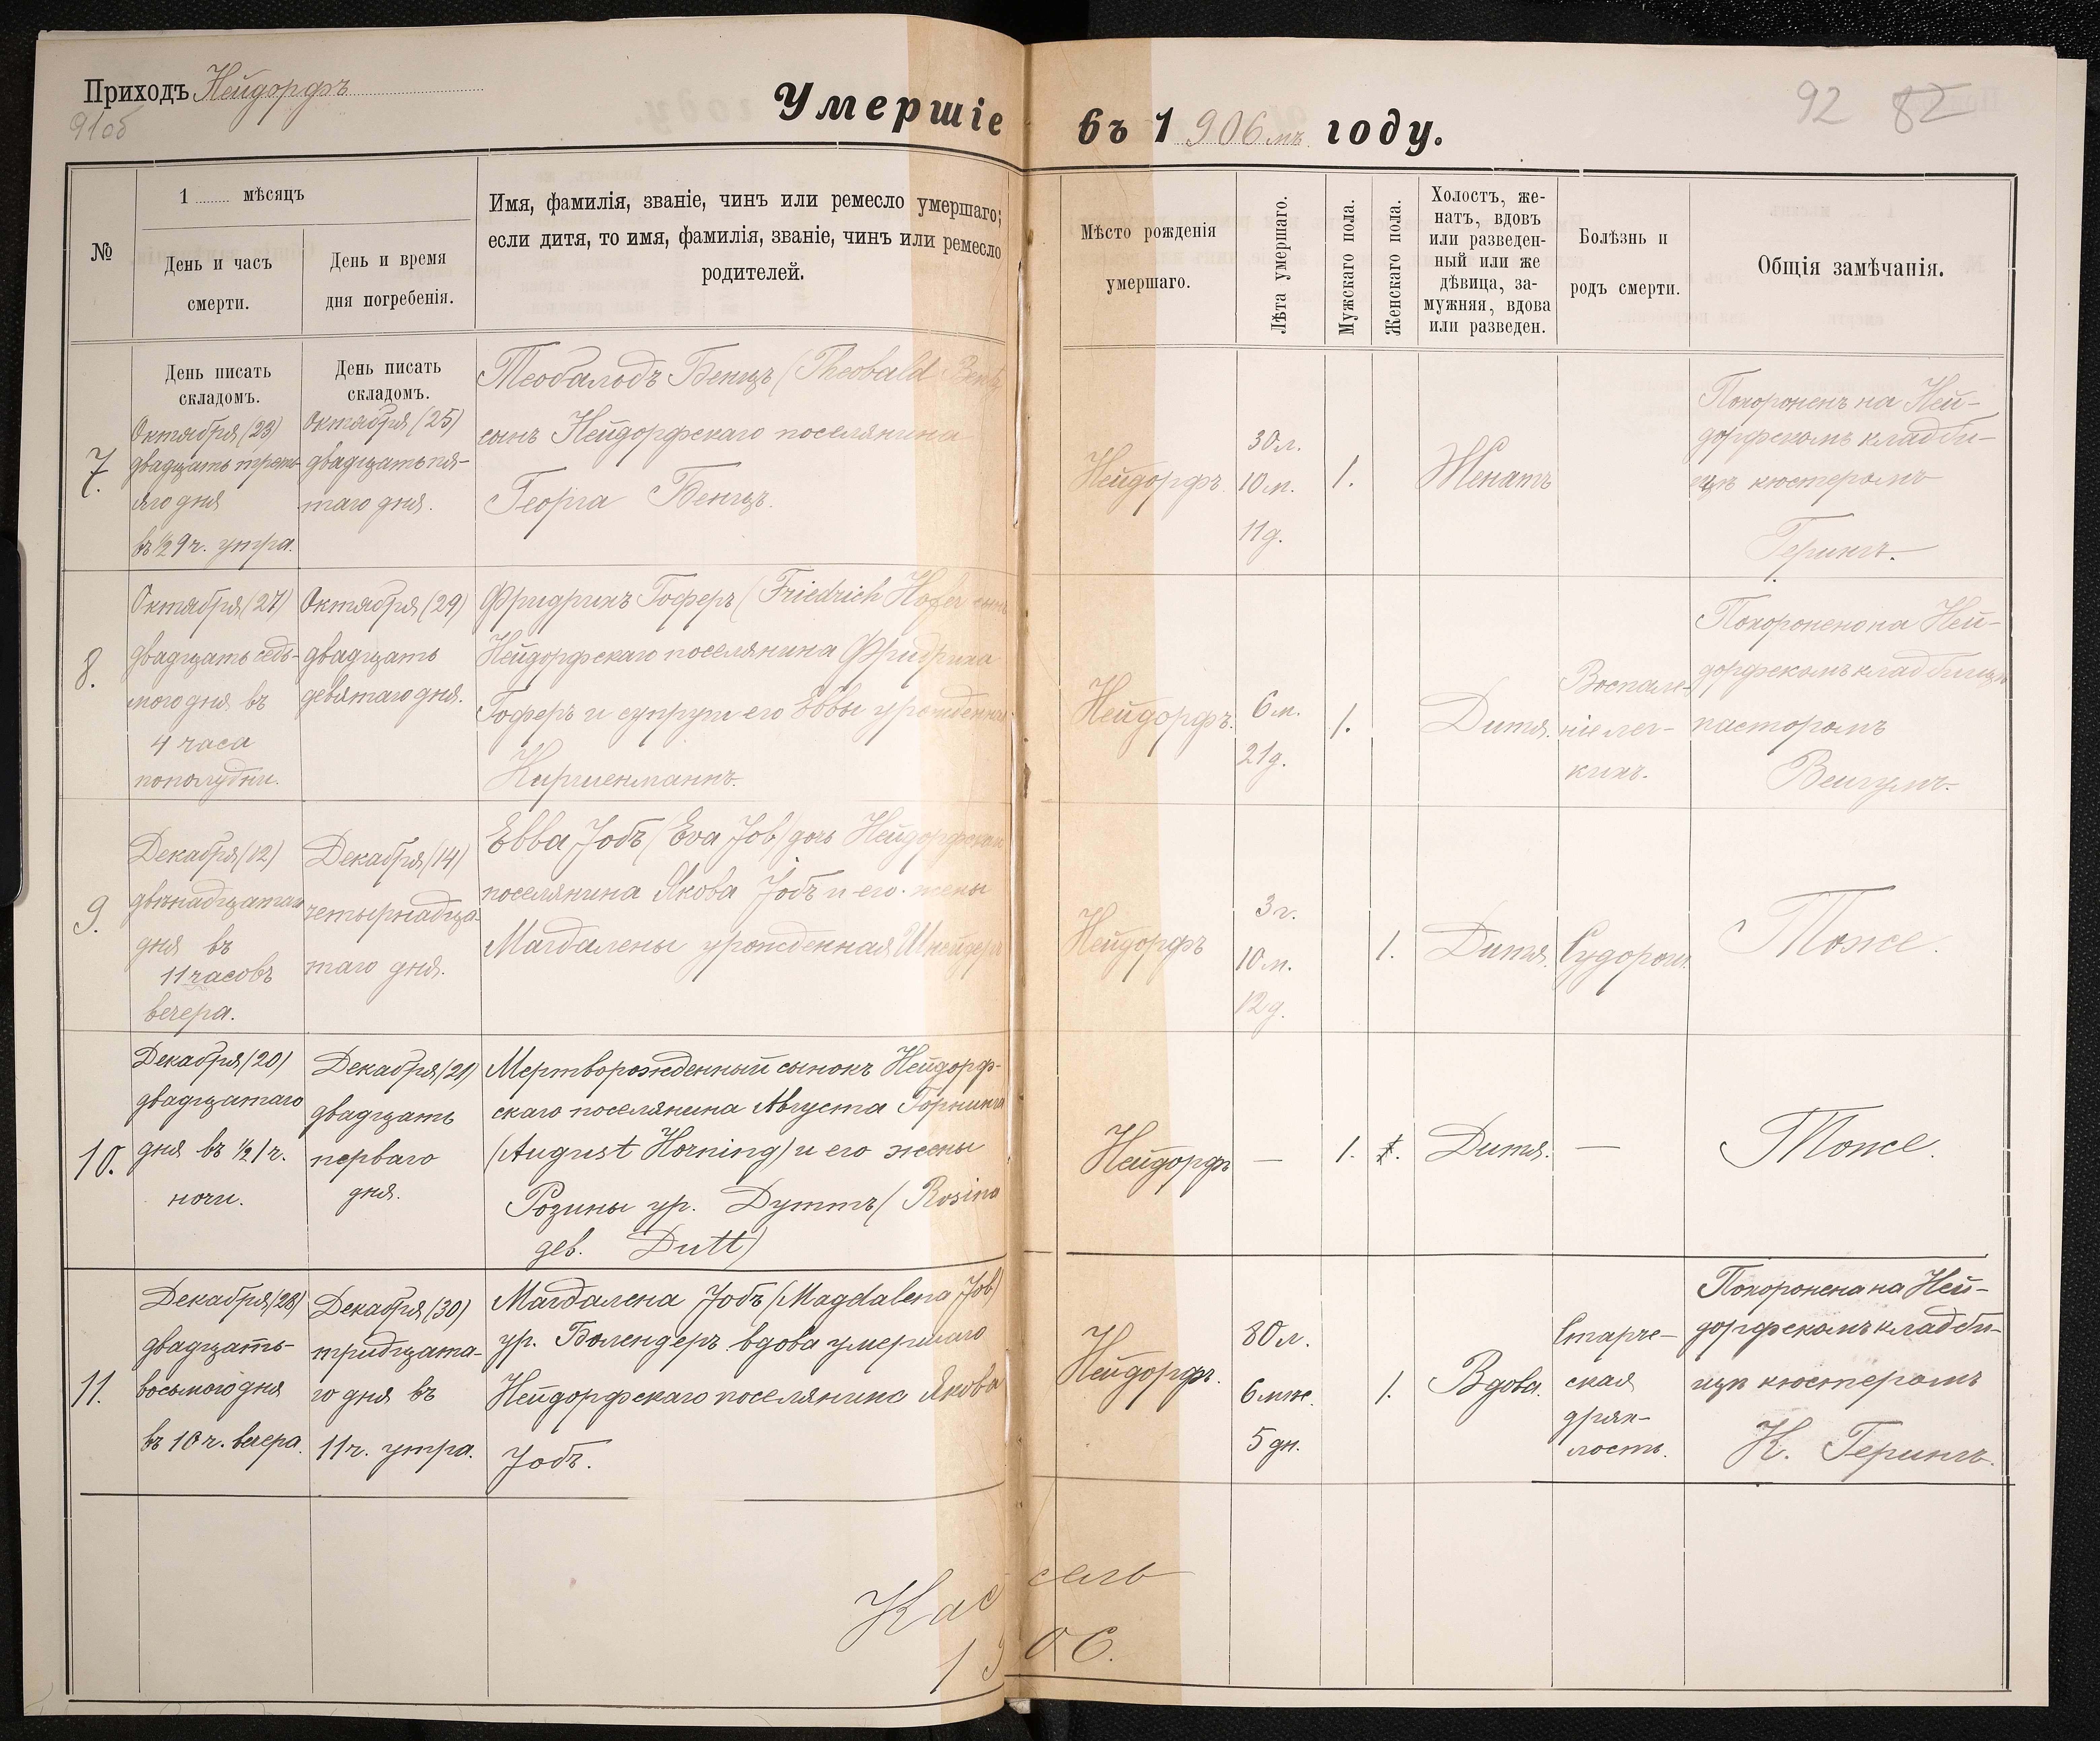 Приходъ Нейдорфъ
91об
Умершіе
въ 1906мъ году.
92 82
№
1 ........ мѣсяцъ
День и часъ
смерти.
День и время
дня погребенія.
Имя, фамилія, званіе, чинъ или ремесло умершаго;
если дитя, то имя, фамилія, званіе, чинъ или ремесло
родителей.
Мѣсто рожденія
умершаго.
Лѣта умершаго.
Мужскаго пола.
Женскаго пола.
Холостъ, же-
натъ, вдовъ
или разведен-
ный или же
дѣвица, за-
мужняя, вдова
или разведен.
Болѣзнь и
родъ смерти.
Общія замѣчанія.
День писать
складомъ.
День писать
складомъ.
7.
Октября (23)
двадцать треть-
яго дня
въ ½9 ч. утра.
Октября (25)
двадцать пя-
таго дня.
Теобальдъ Бенцъ (Theobald Bentz
сынъ Нейдорфскаго поселянина
Георга Бенцъ.
Нейдорфъ.
30 л.
10 м.
11 д.
1.
Женатъ
Похороненъ на Ней-
дорфскомъ кладби-
щѣ кюстеромъ
Герингъ.
8.
Октября (27)
двадцать седь-
мого дня въ
4 часа
пополудни.
Октября (29)
двадцать
девятаго дня.
Фридрихъ Гоферъ (Friedrich Hofer сынъ
Нейдорфскаго поселянина Фридриха
Гоферъ и супруги его Еввы урожденная
Киршенманнъ.
Нейдорфъ.
6 м.
21 д.
1.
Дитя.
Воспале-
ніе лег-
кихъ.
Похоронено на Ней-
дорфскомъ кладбищѣ
пасторомъ
Вейгумъ.
9.
Декабря (12)
двѣнадцатаго
дня въ
11 часовъ
вечера.
Декабря (14)
четырнадца-
таго дня.
Евва Јобъ (Eva Job) дочь Нейдорфскаго
поселянина Якова Јобъ и его жены
Магдалены урожденная Шнейдеръ
Нейдорфъ
3 г.
10 м.
12 д.
1.
Дитя.
Судороги.
Тоже.
10.
Декабря (20)
двадцатаго
дня въ ½1 ч.
ночи.
Декабря (21)
двадцать
перваго
дня.
Мертворожденный сынокъ Нейдорф-
скаго поселянина Августа Горнинга
(August Horning) и его жены
Розины ур. Дуттъ (Rosina
geb. Dutt)
Нейдорфъ
—
1.
Дитя.
—
Тоже.
11.
Декабря (28)
двадцать-
восьмого дня
въ 10 ч. вечера.
Декабря (30)
тридцата-
го дня въ
11 ч. утра.
Магдалена Јобъ (Magdalena Job)
ур. Болендеръ вдова умершаго
Нейдорфскаго поселянина Якова
Јобъ.
Нейдорфъ.
80 л.
6 мѣс.
5 дн.
1.
Вдова.
Старче-
ская
дрях-
лость.
Похоронена на Ней-
дорфскомъ кладби-
щѣ кюстеромъ
К. Герингъ.